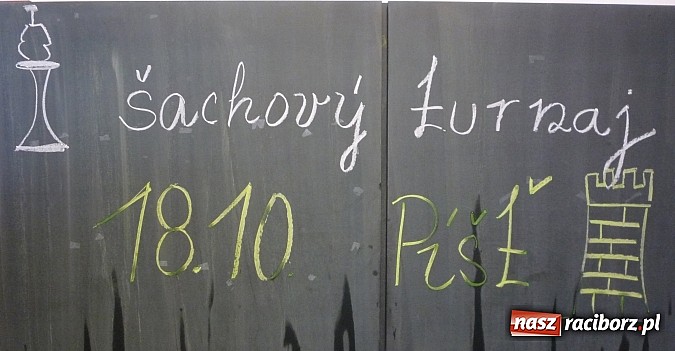 šachový turnaj
18.10. Píšť
nasz raciborz.pl